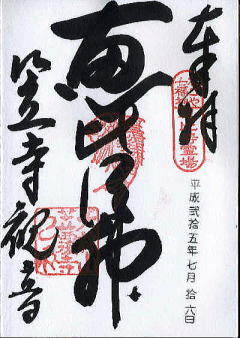 奉拝
平成弐拾五年七月拾六日
恵比須神
笠寺観音